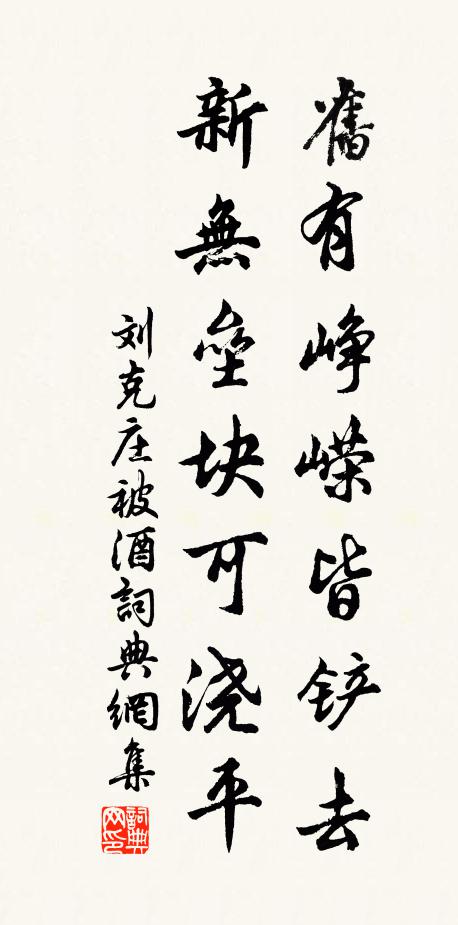 舊有峥嶸皆铲去
新無壘块可浇平
刘克庄被酒詞典網集
詞典网印